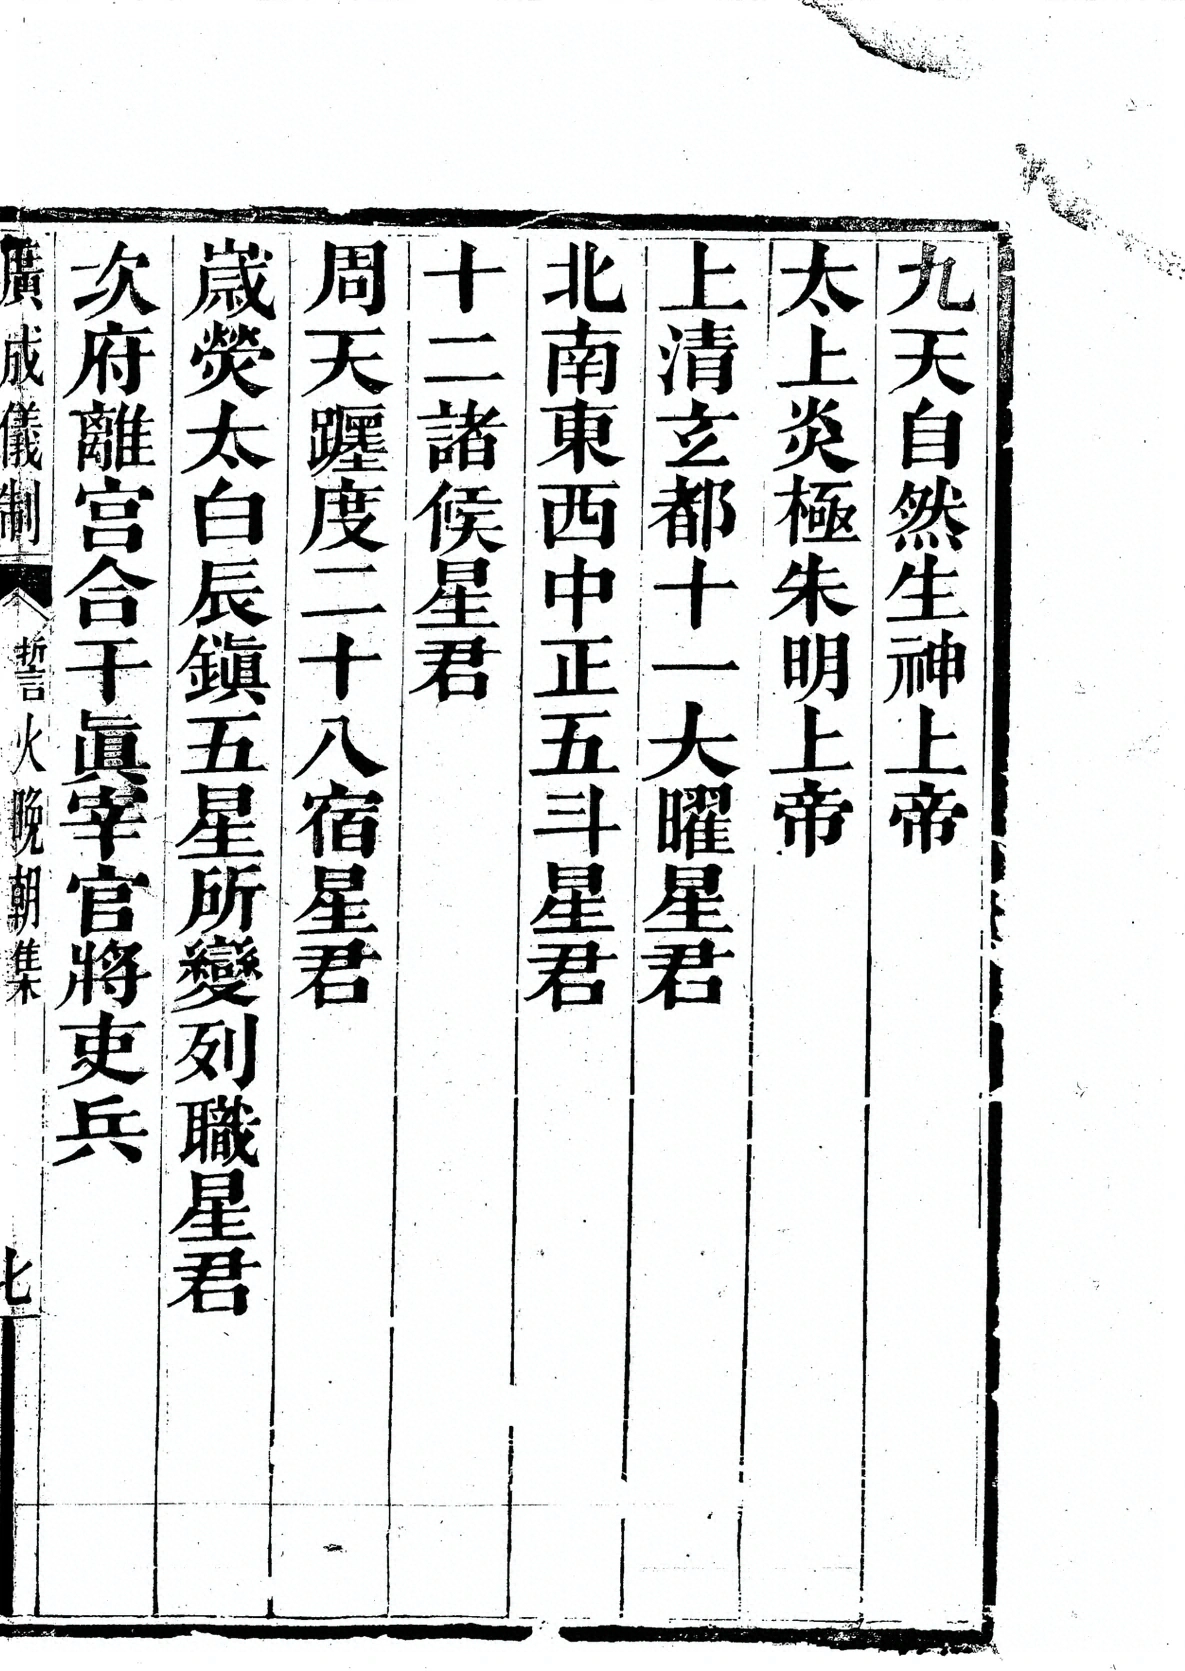 九天自然生神上帝
太上炎極朱明上帝
上清玄都十一大曜星君
北南東西中正五斗星君
十二諸候星君
周天躔度二十八宿星君
嵗熒太白辰鎭五星所變列職星君
次府離宮合干眞宰官將吏兵
廣成儀制
誓火晚朝集
七